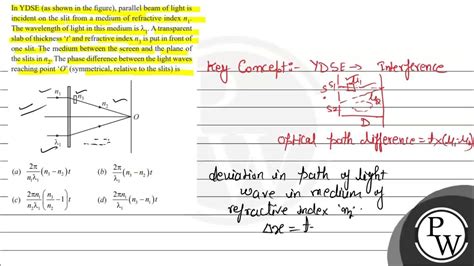 In YDSE (as shown in the figure), parallel beam of light is
incident on the slit from a medium of refractive index n₁.
The wavelength of light in this medium is λ₁. A transparent
slab of thickness 't' and refractive index n₃ is put in front of
one slit. The medium between the screen and the plane of
the slits in n₂. The phase difference between the light waves
reaching point 'O' (symmetrical, relative to the slits) is
n₁ n₃ n₂ O
(a) 2π/n₁λ₁ (n₃ − n₂)t (b) 2π/λ₁ (n₃ − n₂)t
(c) 2πn₁/n₂λ₁ (n₃/n₂ − 1)t (d) 2πn₁/λ₁ (n₃ − n₁)t
Key Concept:- YDSE → Interference
S₁
S₂
D
optical path difference = t×(μ₁-μ₂)
deviation in path of light
wave in medium of
refractive index
Δx = t
PW